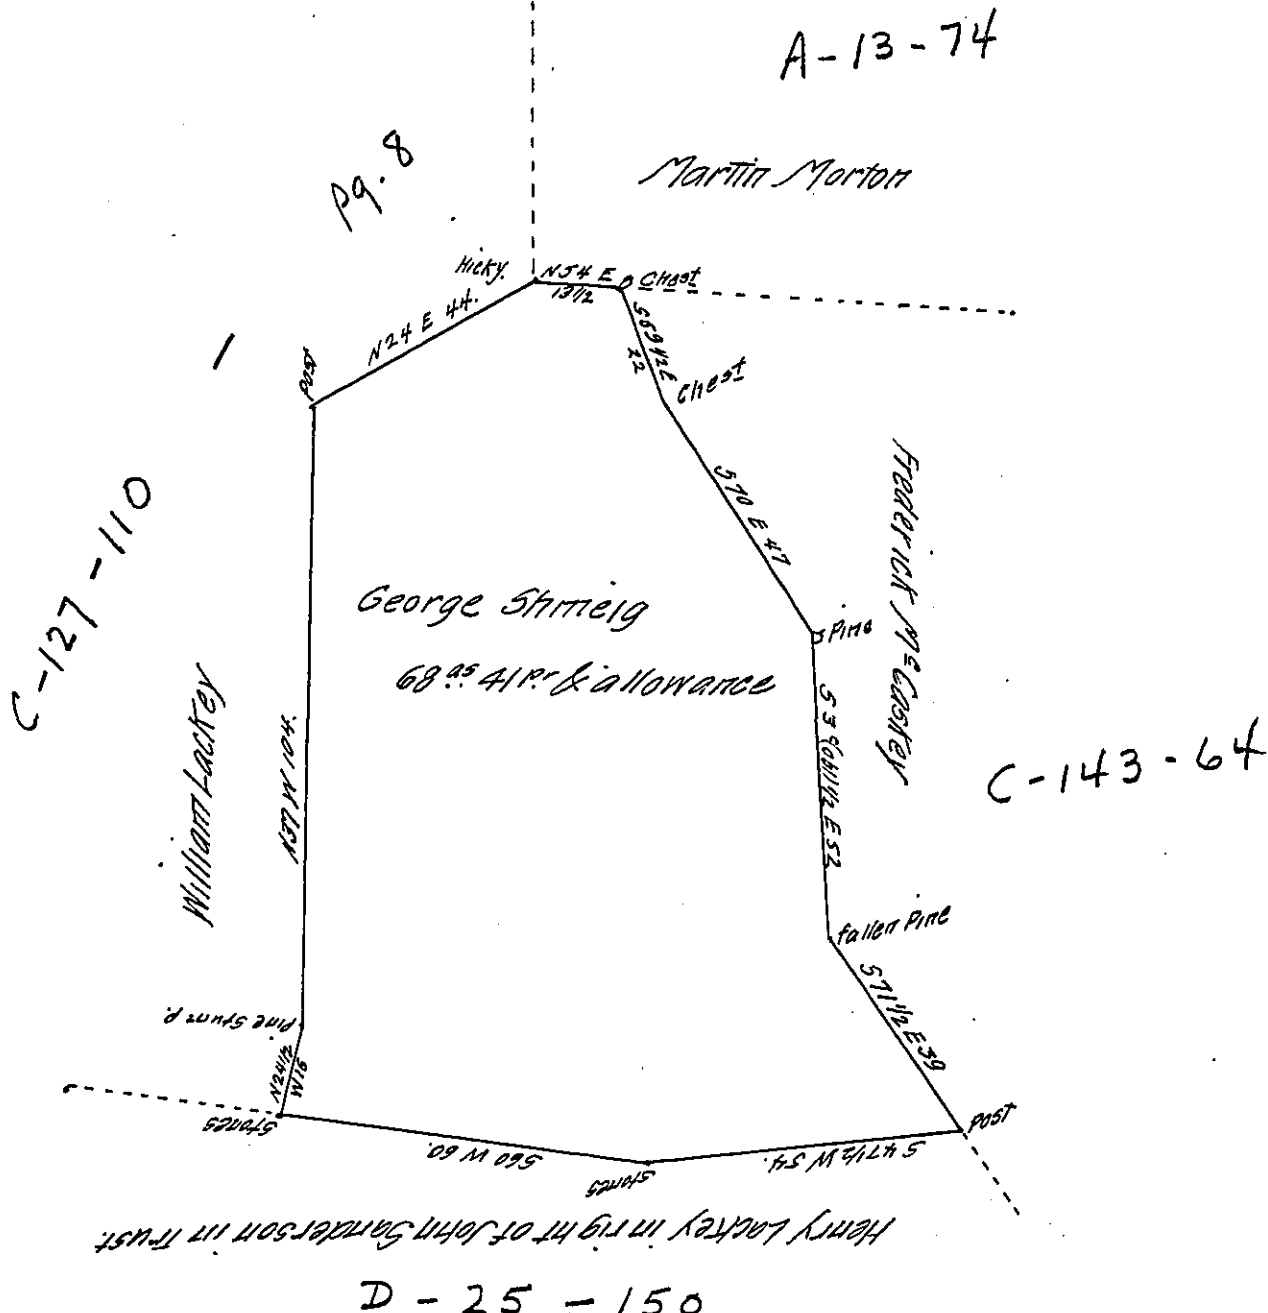 A-13-74
pg. 8
Martin Morton
Hicky.
N54 E
13 1/2
Chest
N24 E 44.
S69 1/2 E
22
Post
Chest
S70 E 47
Frederick McCaskey
C-127-110
George Shmeig
68 as. 41 Pr & allowance
Pine
William Lackey
N37 W 104.
E 52
C-143-64
fallen Pine
S71 1/2 E 39
Pine Stump.
N24 1/2
W16
Stones
S60 W 60.
Stones
S47 1/2 W 54.
Post
Henry Lackey in right of John Sanderson in Trust
D-25-150